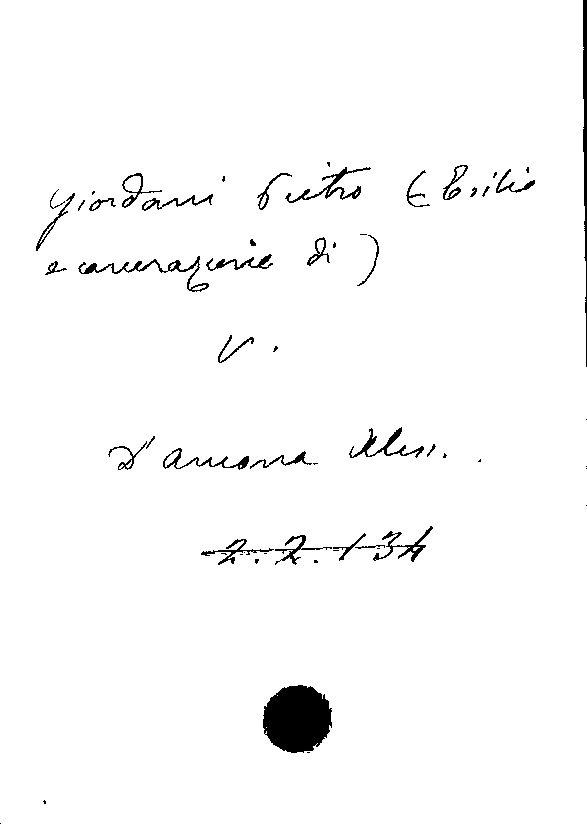 Giordani Pietro (Esilio
e carcerazione di)
V.
D'Ancona Aless.
2.2.134